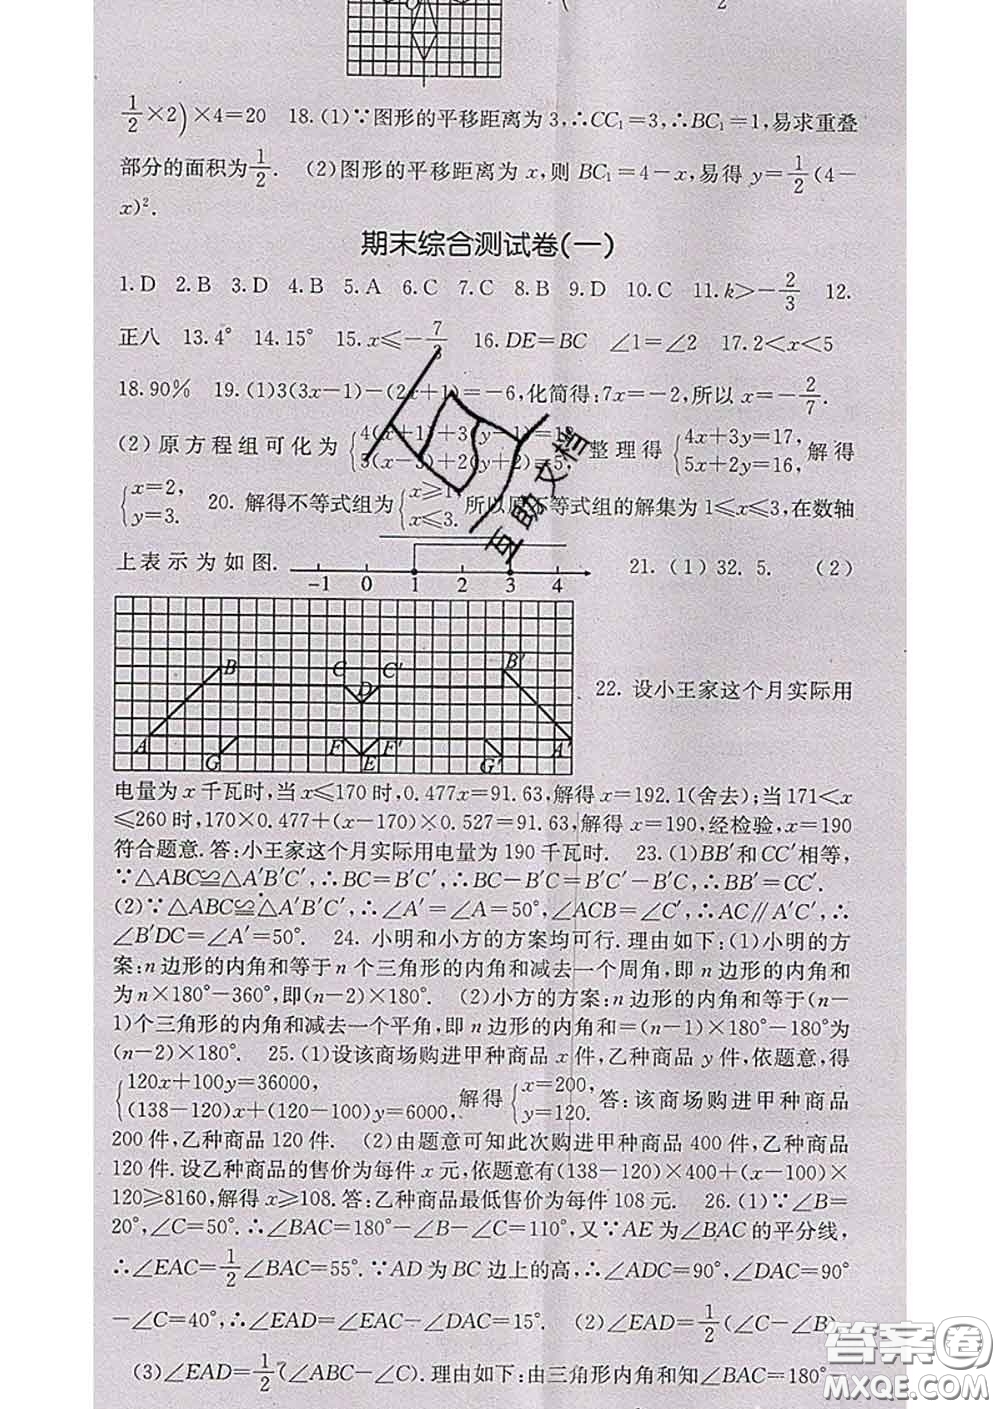 1/2×2)×4=20 18.(1)∵图形的平移距离为3,∴CC₁=3,∴BC₁=1,易求重叠
部分的面积为1/2. (2)图形的平移距离为x,则BC₁=4-x,易得y=1/2(4-
x)².
期末综合测试卷(一)
1.D 2.B 3.D 4.B 5.A 6.C 7.C 8.B 9.D 10.C 11.k>-2/3 12.
正八 13.4° 14.15° 15.x≤-7/3 16.DE=BC ∠1=∠2 17.2<x<5
18.90% 19.(1)3(3x-1)-(2x+1)=-6,化简得:7x=-2,所以x=-2/7.
(2)原方程组可化为 整理得{4x+3y=17, 5x+2y=16, 解得
{x=2, y=3. 20.解得不等式组为{x≥1, x≤3. 所以原不等式组的解集为1≤x≤3,在数轴
上表示为如图. -1 0 1 2 3 4 21.(1)32.5. (2)
B C C' B'
D
A G F F' E G' A'
22.设小王家这个月实际用
电量为x千瓦时,当x≤170时,0.477x=91.63,解得x=192.1(舍去);当171<x
≤260时,170×0.477+(x-170)×0.527=91.63,解得x=190,经检验,x=190
符合题意.答:小王家这个月实际用电量为190千瓦时. 23.(1)BB'和CC'相等,
∵△ABC≌△A'B'C',∴BC=B'C',∴BC-B'C=B'C'-B'C,∴BB'=CC'.
(2)∵△ABC≌△A'B'C',∴∠A'=∠A=50°,∠ACB=∠C',∴AC∥A'C',∴
∠B'DC=∠A'=50°. 24.小明和小方的方案均可行.理由如下:(1)小明的方
案:n边形的内角和等于n个三角形的内角和减去一个周角,即n边形的内角和
为n×180°-360°,即(n-2)×180°. (2)小方的方案:n边形的内角和等于(n-
1)个三角形的内角和减去一个平角,即n边形的内角和=(n-1)×180°-180°为
(n-2)×180°. 25.(1)设该商场购进甲种商品x件,乙种商品y件,依题意,得
{120x+100y=36000, (138-120)x+(120-100)y=6000, 解得{x=200, y=120. 答:该商场购进甲种商品
200件,乙种商品120件. (2)由题意可知此次购进甲种商品400件,乙种商品
120件.设乙种商品的售价为每件x元,依题意有(138-120)×400+(x-100)×
120≥8160,解得x≥108.答:乙种商品最低售价为每件108元. 26.(1)∵∠B=
20°,∠C=50°.∴∠BAC=180°-∠B-∠C=110°,又∵AE为∠BAC的平分线,
∴∠EAC=1/2∠BAC=55°.∵AD为BC边上的高,∴∠ADC=90°,∠DAC=90°
-∠C=40°,∴∠EAD=∠EAC-∠DAC=15°. (2)∠EAD=1/2(∠C-∠B).
(3)∠EAD=1/2(∠ABC-∠C).理由如下:由三角形内角和知∠BAC=180°-
互助文档
答案圈
MXQE.COM